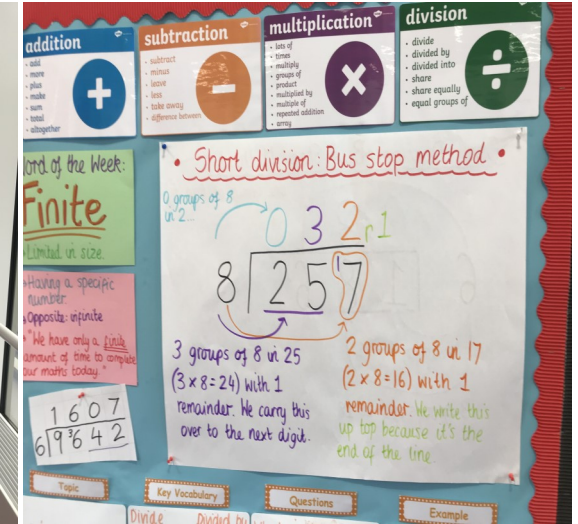 addition
• add
• more
• plus
• make
• sum
• total
• altogether
subtraction
• subtract
• minus
• leave
• less
• take away
• difference between
multiplication
• lots of
• times
• multiply
• groups of
• product
• multiplied by
• multiple of
• repeated addition
• array
division
• divide
• divided by
• divided into
• share
• share equally
• equal groups of
+
-
×
÷
ord of the Week:
Finite
Limited in size.
Having a specific
number.
Opposite: infinite
"We have only a finite
amount of time to complete
our maths today."
1 6 0 7
6 9 ³6 4 2
• Short division: Bus stop method •
0 groups of 8
in 2...
0 3 2 r 1
8 2 5 ¹7
3 groups of 8 in 25
(3 x 8 = 24) with 1
remainder. We carry this
over to the next digit.
2 groups of 8 in 17
(2 x 8 = 16) with 1
remainder. We write this
up top because it's the
end of the line.
Topic
Key Vocabulary
Questions
Example
Divide Divided by